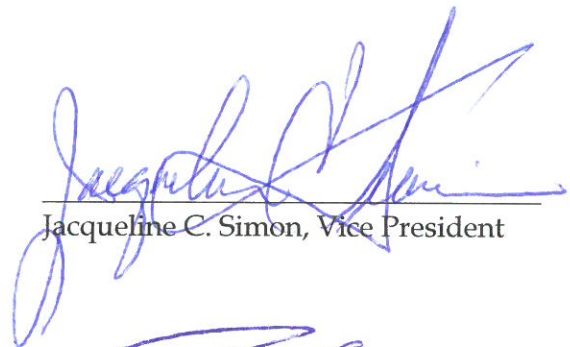 Jacqueline C. Simon
Jacqueline C. Simon, Vice President